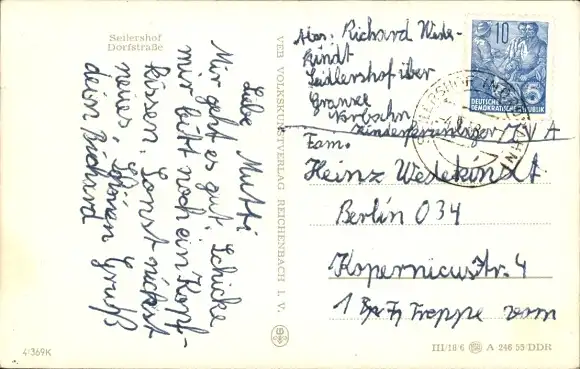 Seilershof
Dorfstraße
Liebe Mutti
Mir geht es gut. Schicke
mir bitt noch ein Kopf-
kissen. Sonst nichts
neues. Schönen Gruß
dein Richard
4/369K
VEB VOLKSKUNSTVERLAG REICHENBACH I. V.
Abs. Richard Wede-
kindt
Seidlershof über
Gransee
Norbahn
Kinderferienlager IV A
10
DEUTSCHE
DEMOKRATISCHE REPUBLIK
Fam.
Heinz Wedekindt
Berlin 034
Kopernicusstr. 4
1 Treppe vorn
III/18/6 A 246 55 DDR